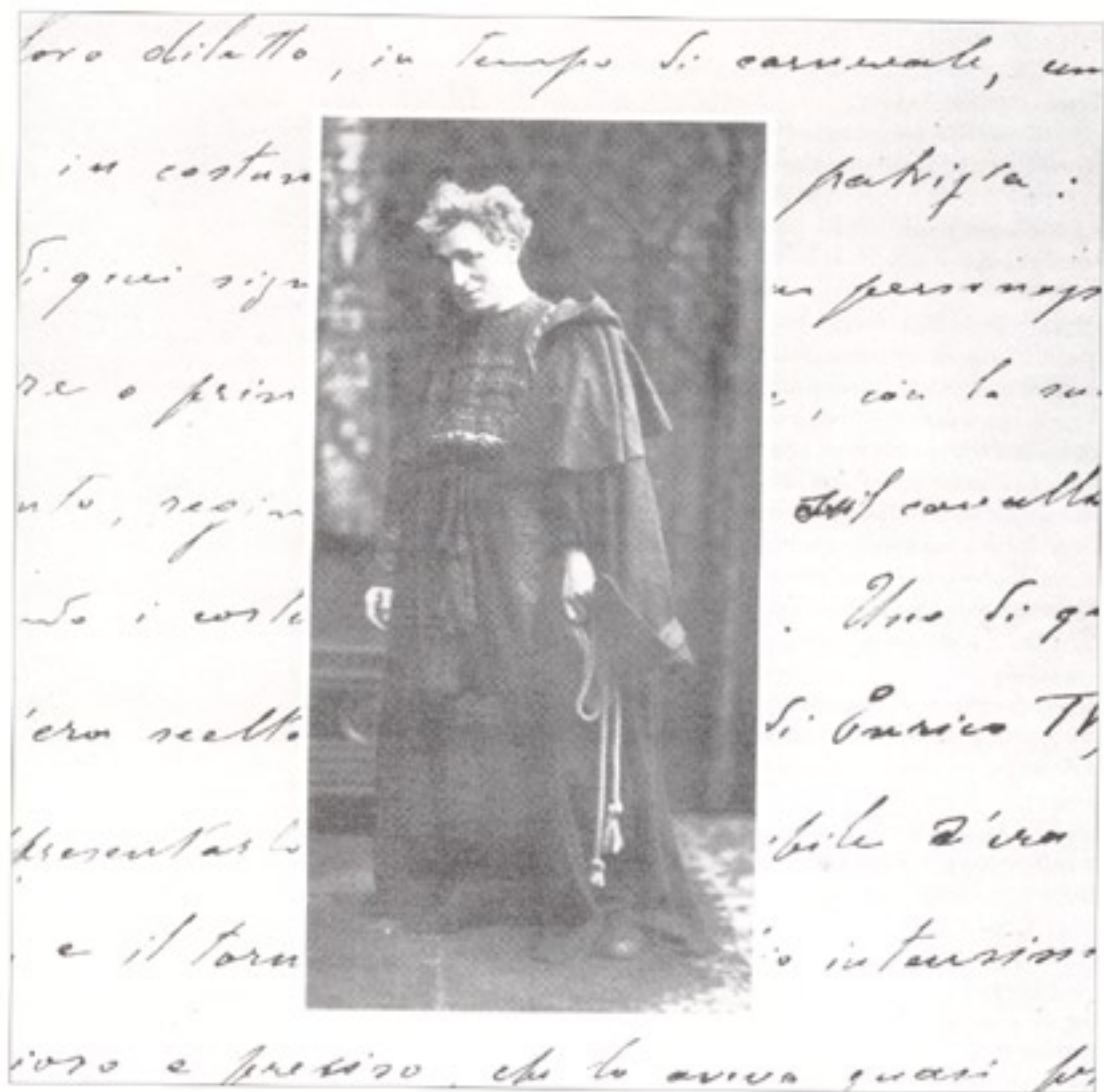 loro diletto, in tempo di carnevale, un
in costum patrizia:
di quei sign un personagg
re o prin , con la su
nto, regin sul cavallo
ndo i cost . Uno di qu
'era scelto di Enrico IV,
presentarlo ibile s'era
. e il torm io intensissi
ioso e preciso, che lo aveva quasi